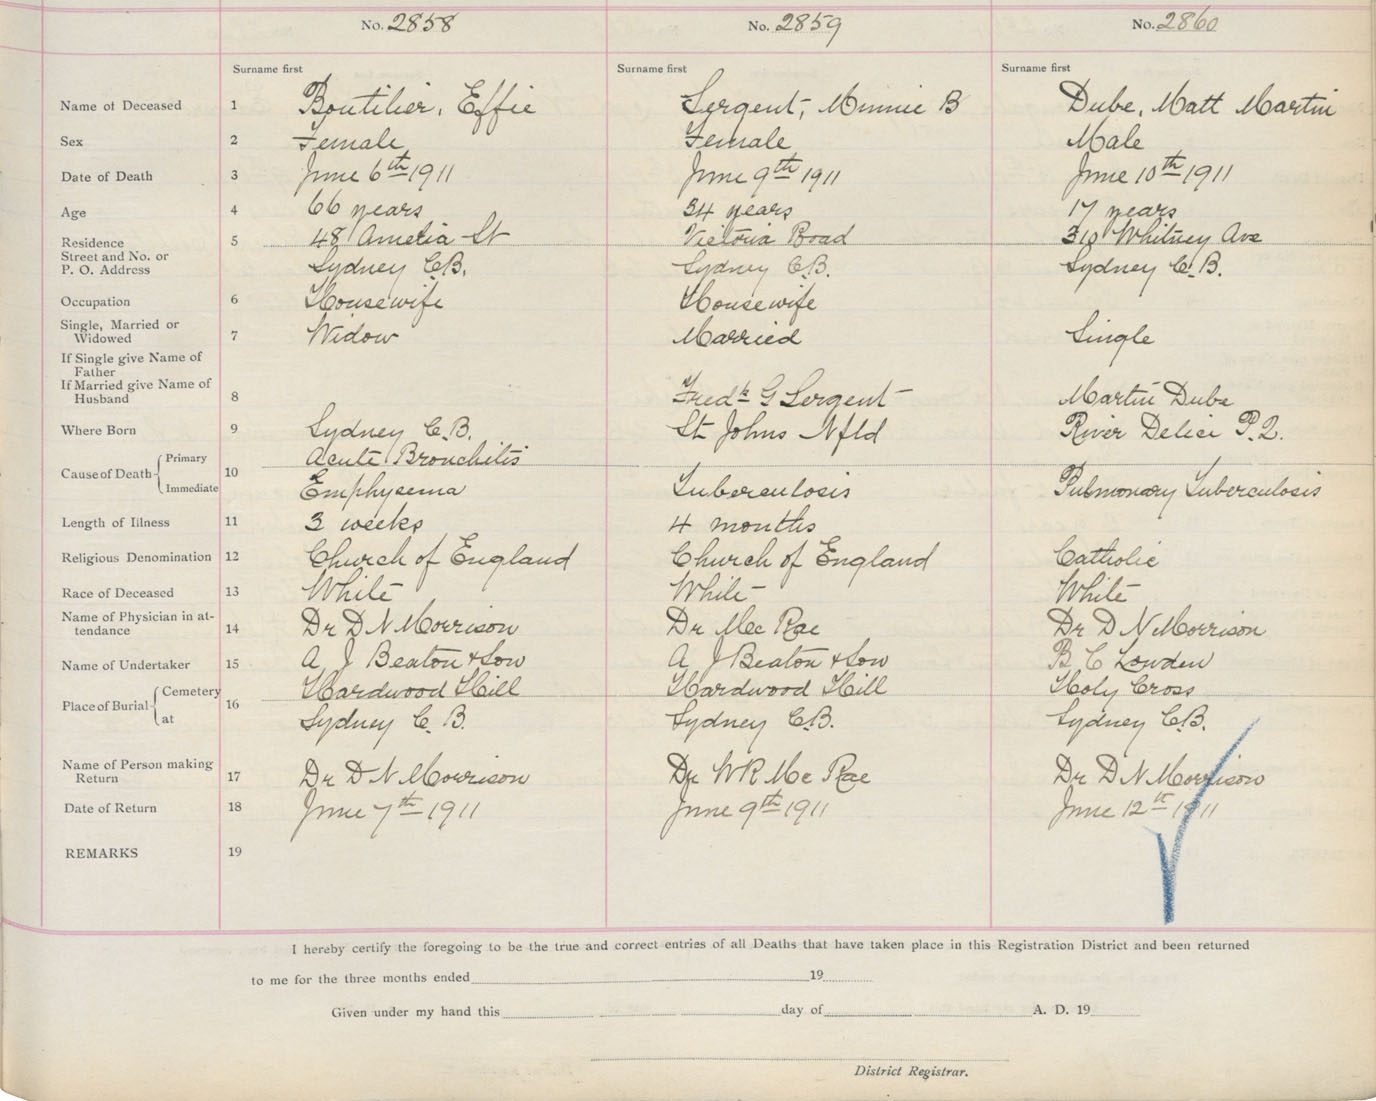 No. 2858 No. 2859 No. 2860
Surname first Surname first Surname first
Name of Deceased 1 Boutilier, Effie Sergent, Minnie B Dube, Matt Martin
Sex 2 Female Female Male
Date of Death 3 June 6th 1911 June 9th 1911 June 10th 1911
Age 4 66 years 34 years 17 years
Residence 5 48 Amelia St Victoria Road 310 Whitney Ave
Street and No. or
P. O. Address Sydney C.B. Sydney C.B. Sydney C.B.
Occupation 6 Housewife Housewife
Single, Married or
Widowed 7 Widow Married Single
If Single give Name of
Father
If Married give Name of
Husband 8 Fredk G Sergent Martin Dube
Where Born 9 Sydney C.B. St Johns Nfld River Delici P.Q.
Cause of Death Primary 10 Acute Bronchitis
Immediate Emphysema Tuberculosis Pulmonary Tuberculosis
Length of Illness 11 3 weeks 4 months
Religious Denomination 12 Church of England Church of England Catholic
Race of Deceased 13 White White White
Name of Physician in at-
tendance 14 Dr D N Morrison Dr Mc Rae Dr D N Morrison
Name of Undertaker 15 A J Beaton & Son A J Beaton & Son B C Lowden
Place of Burial Cemetery 16 Hardwood Hill Hardwood Hill Holy Cross
at Sydney C.B. Sydney C.B. Sydney C.B.
Name of Person making
Return 17 Dr D N Morrison Dr W R Mc Rae Dr D N Morrison
Date of Return 18 June 7th 1911 June 9th 1911 June 12th 1911
REMARKS 19
I hereby certify the foregoing to be the true and correct entries of all Deaths that have taken place in this Registration District and been returned
to me for the three months ended 19
Given under my hand this day of A. D. 19
District Registrar.